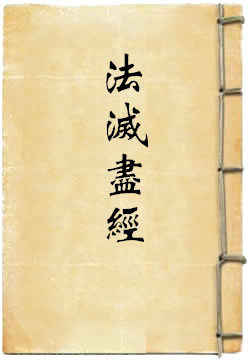 法滅盡經